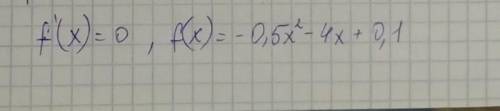 f'(x) = 0 , f(x) = - 0,5x² - 4x + 0,1